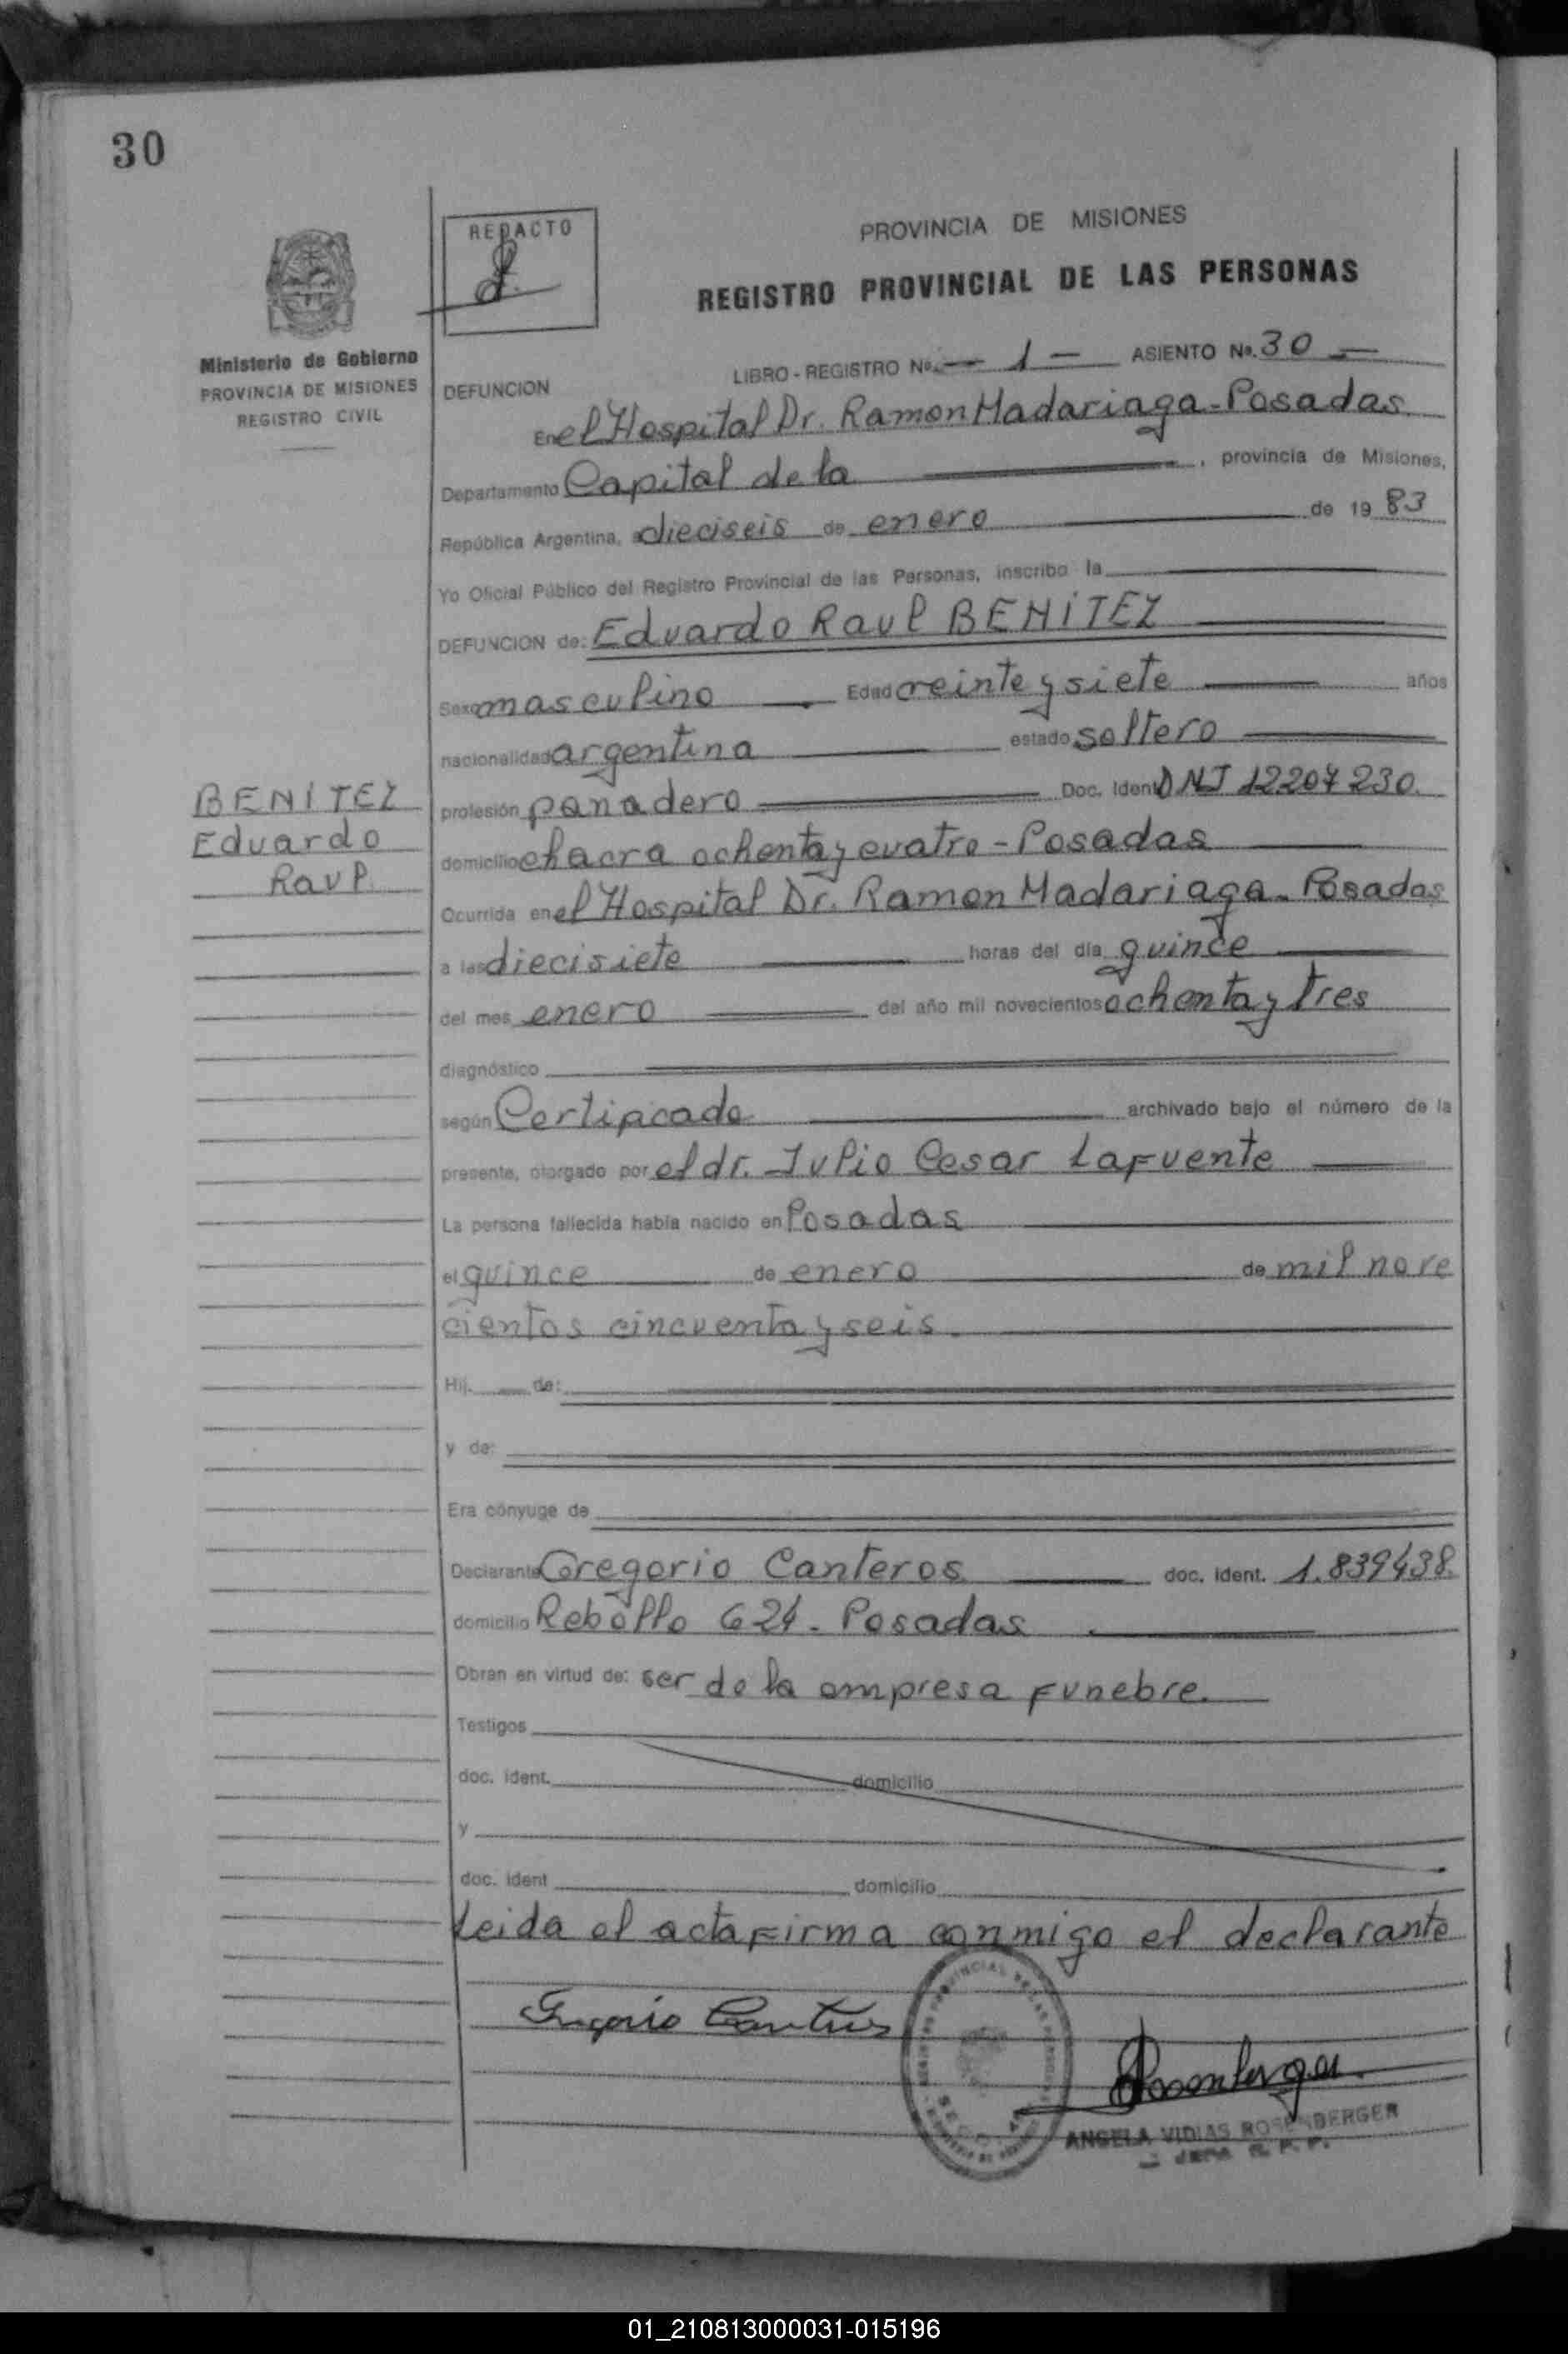 30
REDACTO
PROVINCIA DE MISIONES
REGISTRO PROVINCIAL DE LAS PERSONAS
Ministerio de Gobierno
PROVINCIA DE MISIONES
REGISTRO CIVIL
LIBRO - REGISTRO No. — 1 — ASIENTO No. 30 —
DEFUNCION
En el Hospital Dr. Ramon Madariaga - Posadas
Departamento Capital de la , provincia de Misiones,
República Argentina, a dieciseis de enero de 19 83
Yo Oficial Público del Registro Provincial de las Personas, inscribo la
DEFUNCION de: Eduardo Raul BENITEZ
Sexo masculino Edad veinte y siete años
nacionalidad argentina estado soltero
BENITEZ
Eduardo
Raul
profesión panadero Doc. Ident. DNI 12207230.
domicilio chacra ochenta y cuatro - Posadas
Ocurrida en el Hospital Dr. Ramon Madariaga - Posadas
a las diecisiete horas del día quince
del mes enero del año mil novecientos ochenta y tres
diagnóstico
según Certificado archivado bajo el número de la
presente, otorgado por el dr. Julio Cesar Lafuente
La persona fallecida había nacido en Posadas
el quince de enero de mil nove
cientos cincuenta y seis.
Hij. de:
y de:
Era cónyuge de
Declarante Gregorio Canteros doc. ident. 1.839438.
domicilio Rebollo 624 - Posadas
Obran en virtud de: ser de la empresa funebre.
Testigos
doc. ident. domicilio
y
doc. ident domicilio
Leida el acta firma conmigo el declarante
Gregorio Canteros
ANGELA VIDIAS ROSENBERGER
01_210813000031-015196